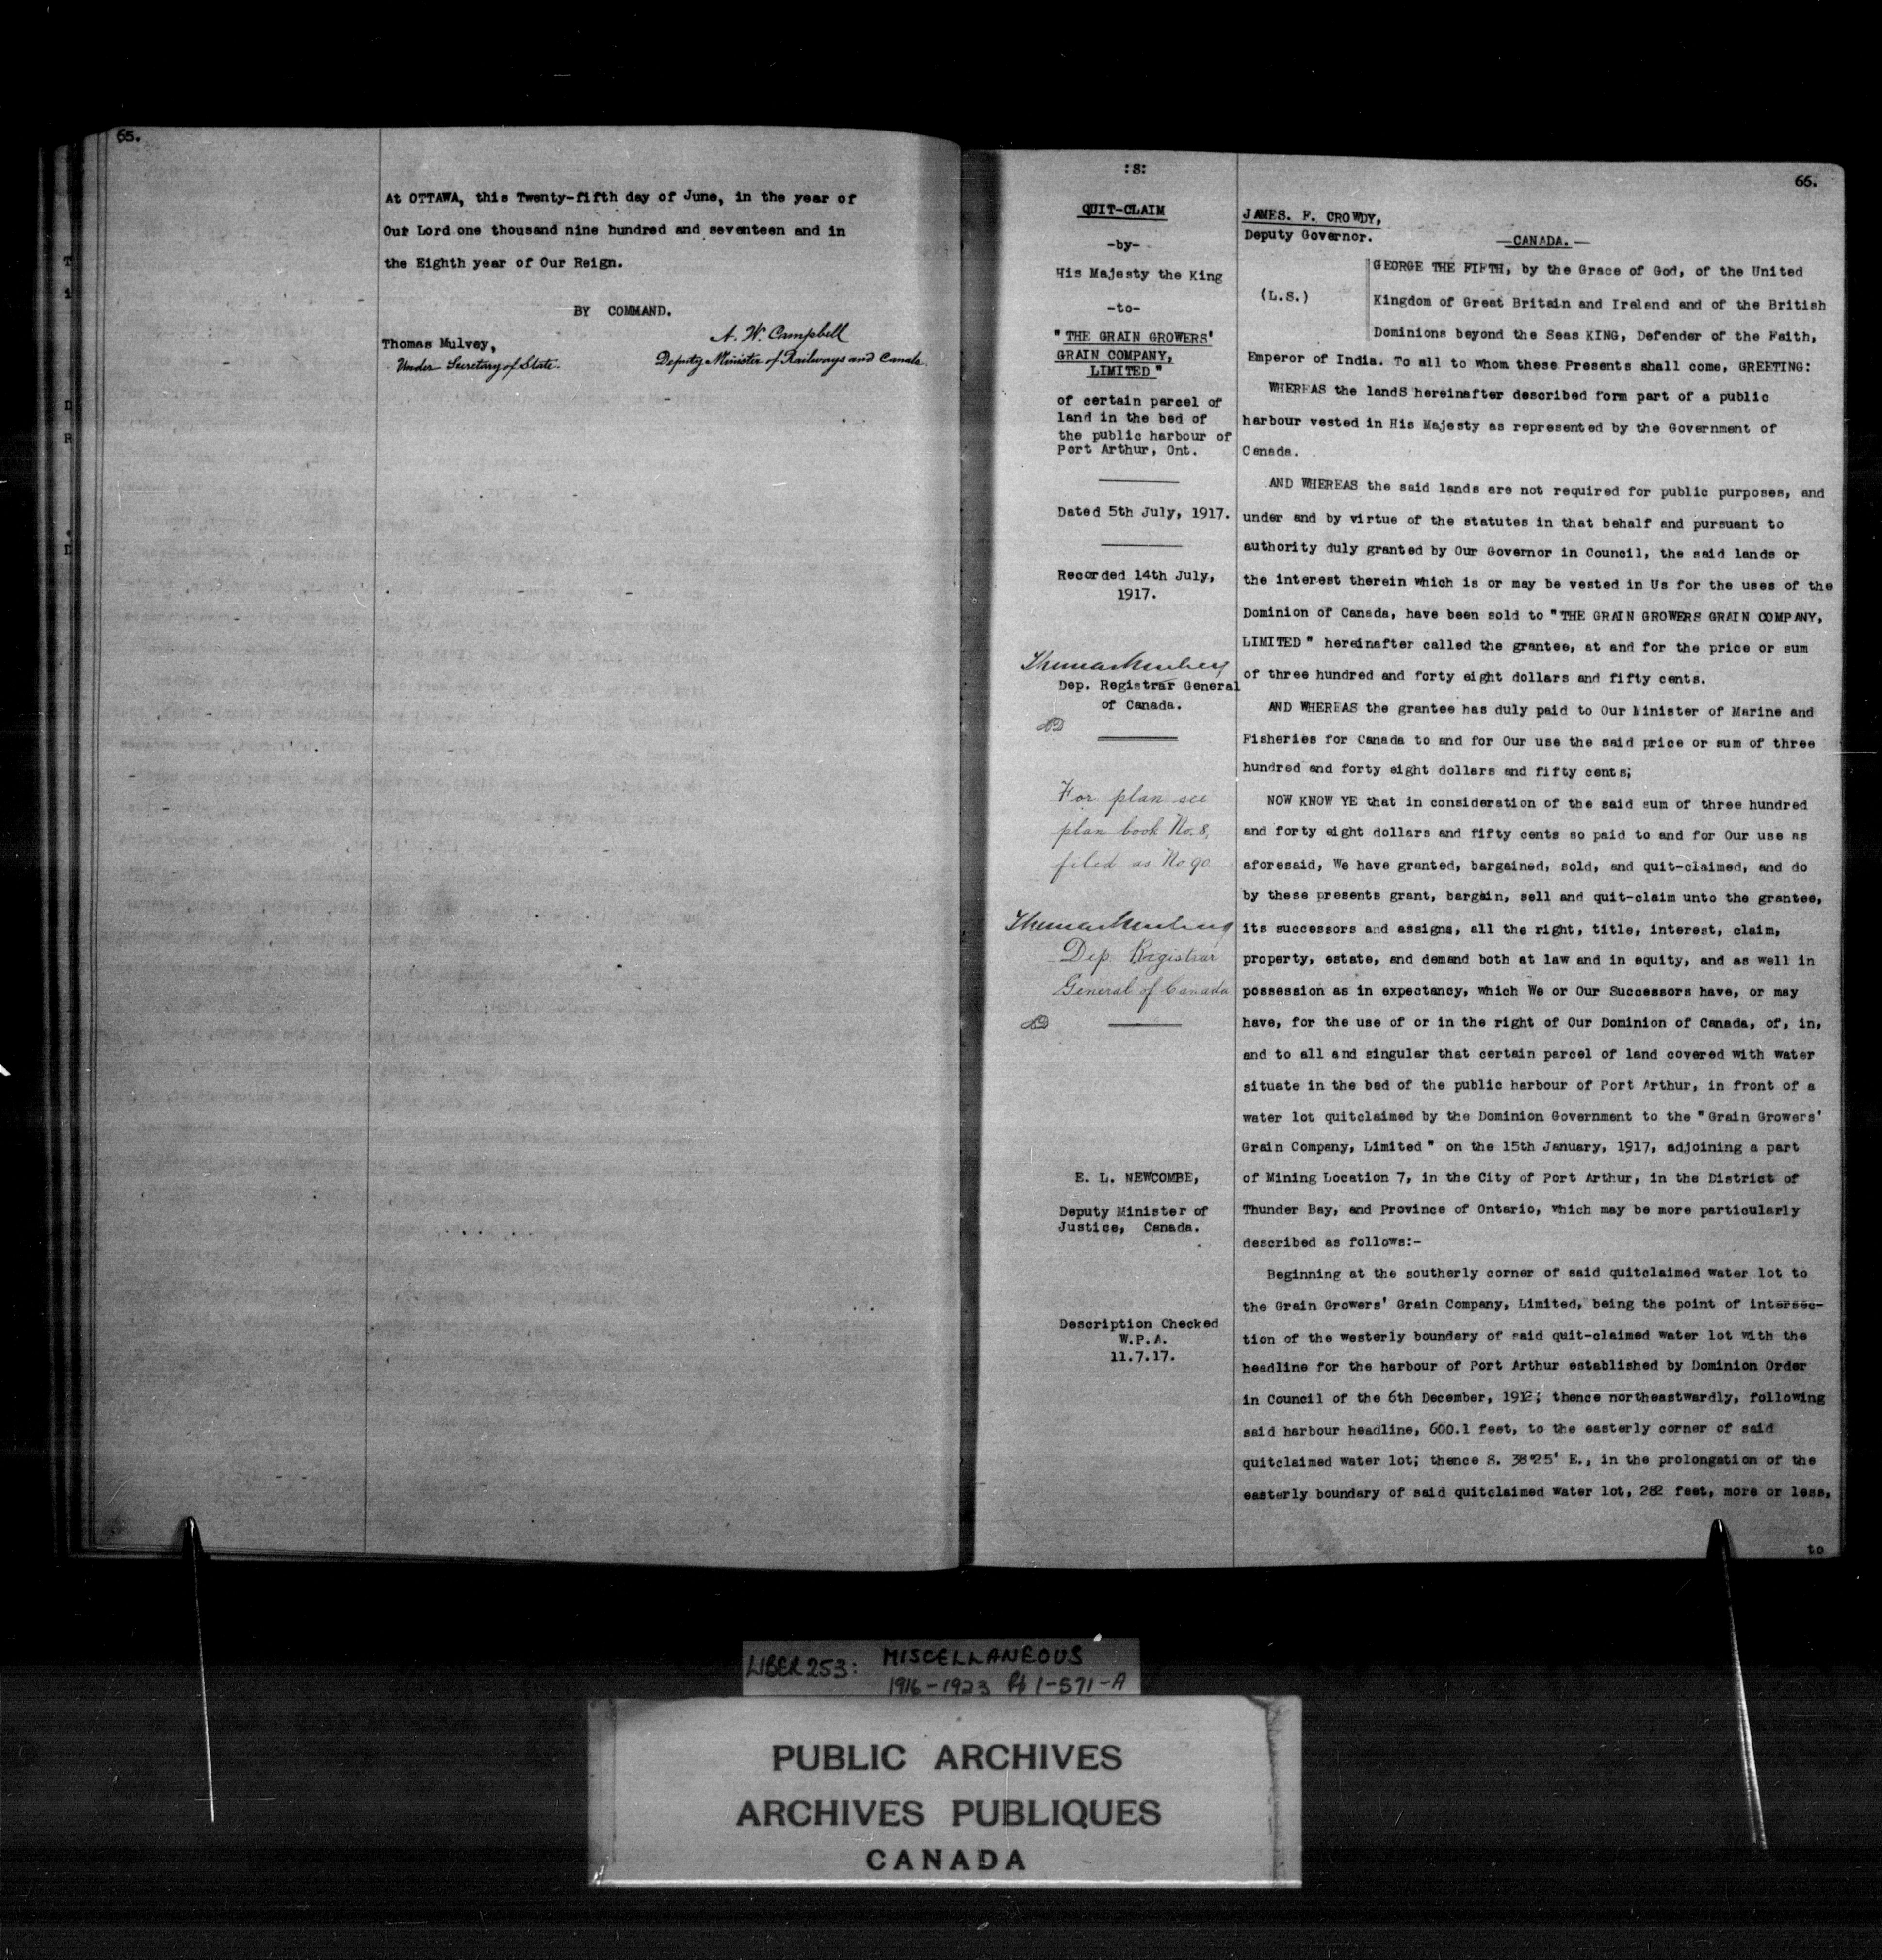 65.
At OTTAWA, this Twenty-fifth day of June, in the year of
Our Lord one thousand nine hundred and seventeen and in
the Eighth year of Our Reign.
BY COMMAND.
Thomas Mulvey,
Under Secretary of State.
A. W. Campbell
Deputy Minister of Railways and Canals.
:8:
QUIT-CLAIM
-by-
His Majesty the King
-to-
"THE GRAIN GROWERS'
GRAIN COMPANY,
LIMITED"
of certain parcel of
land in the bed of
the public harbour of
Port Arthur, Ont.
Dated 5th July, 1917.
Recorded 14th July,
1917.
Thomas Mulvey
Dep. Registrar General
of Canada.
For plan see
plan book No. 8,
filed as No. 90
Thomas Mulvey
Dep. Registrar
General of Canada
E. L. NEWCOMBE,
Deputy Minister of
Justice, Canada.
Description Checked
W.P.A.
11.7.17.
66.
JAMES. F. CROWDY,
Deputy Governor.
—CANADA.—
(L.S.)
GEORGE THE FIFTH, by the Grace of God, of the United
Kingdom of Great Britain and Ireland and of the British
Dominions beyond the Seas KING, Defender of the Faith,
Emperor of India. To all to whom these Presents shall come, GREETING:
WHEREAS the landS hereinafter described form part of a public
harbour vested in His Majesty as represented by the Government of
Canada.
AND WHEREAS the said lands are not required for public purposes, and
under and by virtue of the statutes in that behalf and pursuant to
authority duly granted by Our Governor in Council, the said lands or
the interest therein which is or may be vested in Us for the uses of the
Dominion of Canada, have been sold to "THE GRAIN GROWERS GRAIN COMPANY,
LIMITED" hereinafter called the grantee, at and for the price or sum
of three hundred and forty eight dollars and fifty cents.
AND WHEREAS the grantee has duly paid to Our Minister of Marine and
Fisheries for Canada to and for Our use the said price or sum of three
hundred and forty eight dollars and fifty cents;
NOW KNOW YE that in consideration of the said sum of three hundred
and forty eight dollars and fifty cents so paid to and for Our use as
aforesaid, We have granted, bargained, sold, and quit-claimed, and do
by these presents grant, bargain, sell and quit-claim unto the grantee,
its successors and assigns, all the right, title, interest, claim,
property, estate, and demand both at law and in equity, and as well in
possession as in expectancy, which We or Our Successors have, or may
have, for the use of or in the right of Our Dominion of Canada, of, in,
and to all and singular that certain parcel of land covered with water
situate in the bed of the public harbour of Port Arthur, in front of a
water lot quitclaimed by the Dominion Government to the "Grain Growers'
Grain Company, Limited" on the 15th January, 1917, adjoining a part
of Mining Location 7, in the City of Port Arthur, in the District of
Thunder Bay, and Province of Ontario, which may be more particularly
described as follows:-
Beginning at the southerly corner of said quitclaimed water lot to
the Grain Growers' Grain Company, Limited, being the point of intersec-
tion of the westerly boundary of said quit-claimed water lot with the
headline for the harbour of Port Arthur established by Dominion Order
in Council of the 6th December, 1912; thence northeastwardly, following
said harbour headline, 600.1 feet, to the easterly corner of said
quitclaimed water lot; thence S. 38°25' E., in the prolongation of the
easterly boundary of said quitclaimed water lot, 282 feet, more or less,
to
LIBER 253: MISCELLANEOUS
1916-1923 Pp 1-571-A
PUBLIC ARCHIVES
ARCHIVES PUBLIQUES
CANADA